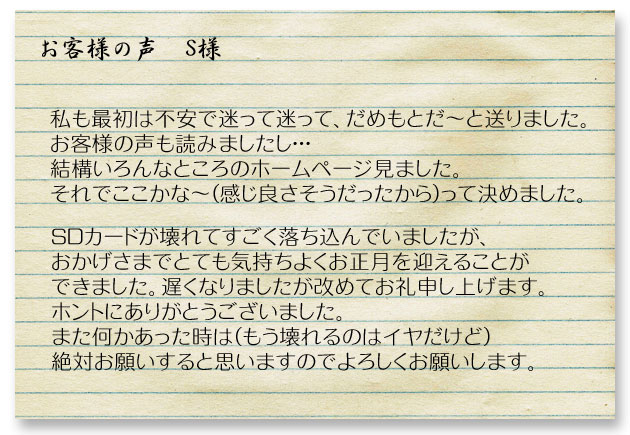 お客様の声　S様
私も最初は不安で迷って迷って、だめもとだ～と送りました。
お客様の声も読みましたし…
結構いろんなところのホームページ見ました。
それでここかな～(感じ良さそうだったから)って決めました。
SDカードが壊れてすごく落ち込んでいましたが、
おかげさまでとても気持ちよくお正月を迎えることが
できました。遅くなりましたが改めてお礼申し上げます。
ホントにありがとうございました。
また何かあった時は(もう壊れるのはイヤだけど)
絶対お願いすると思いますのでよろしくお願いします。